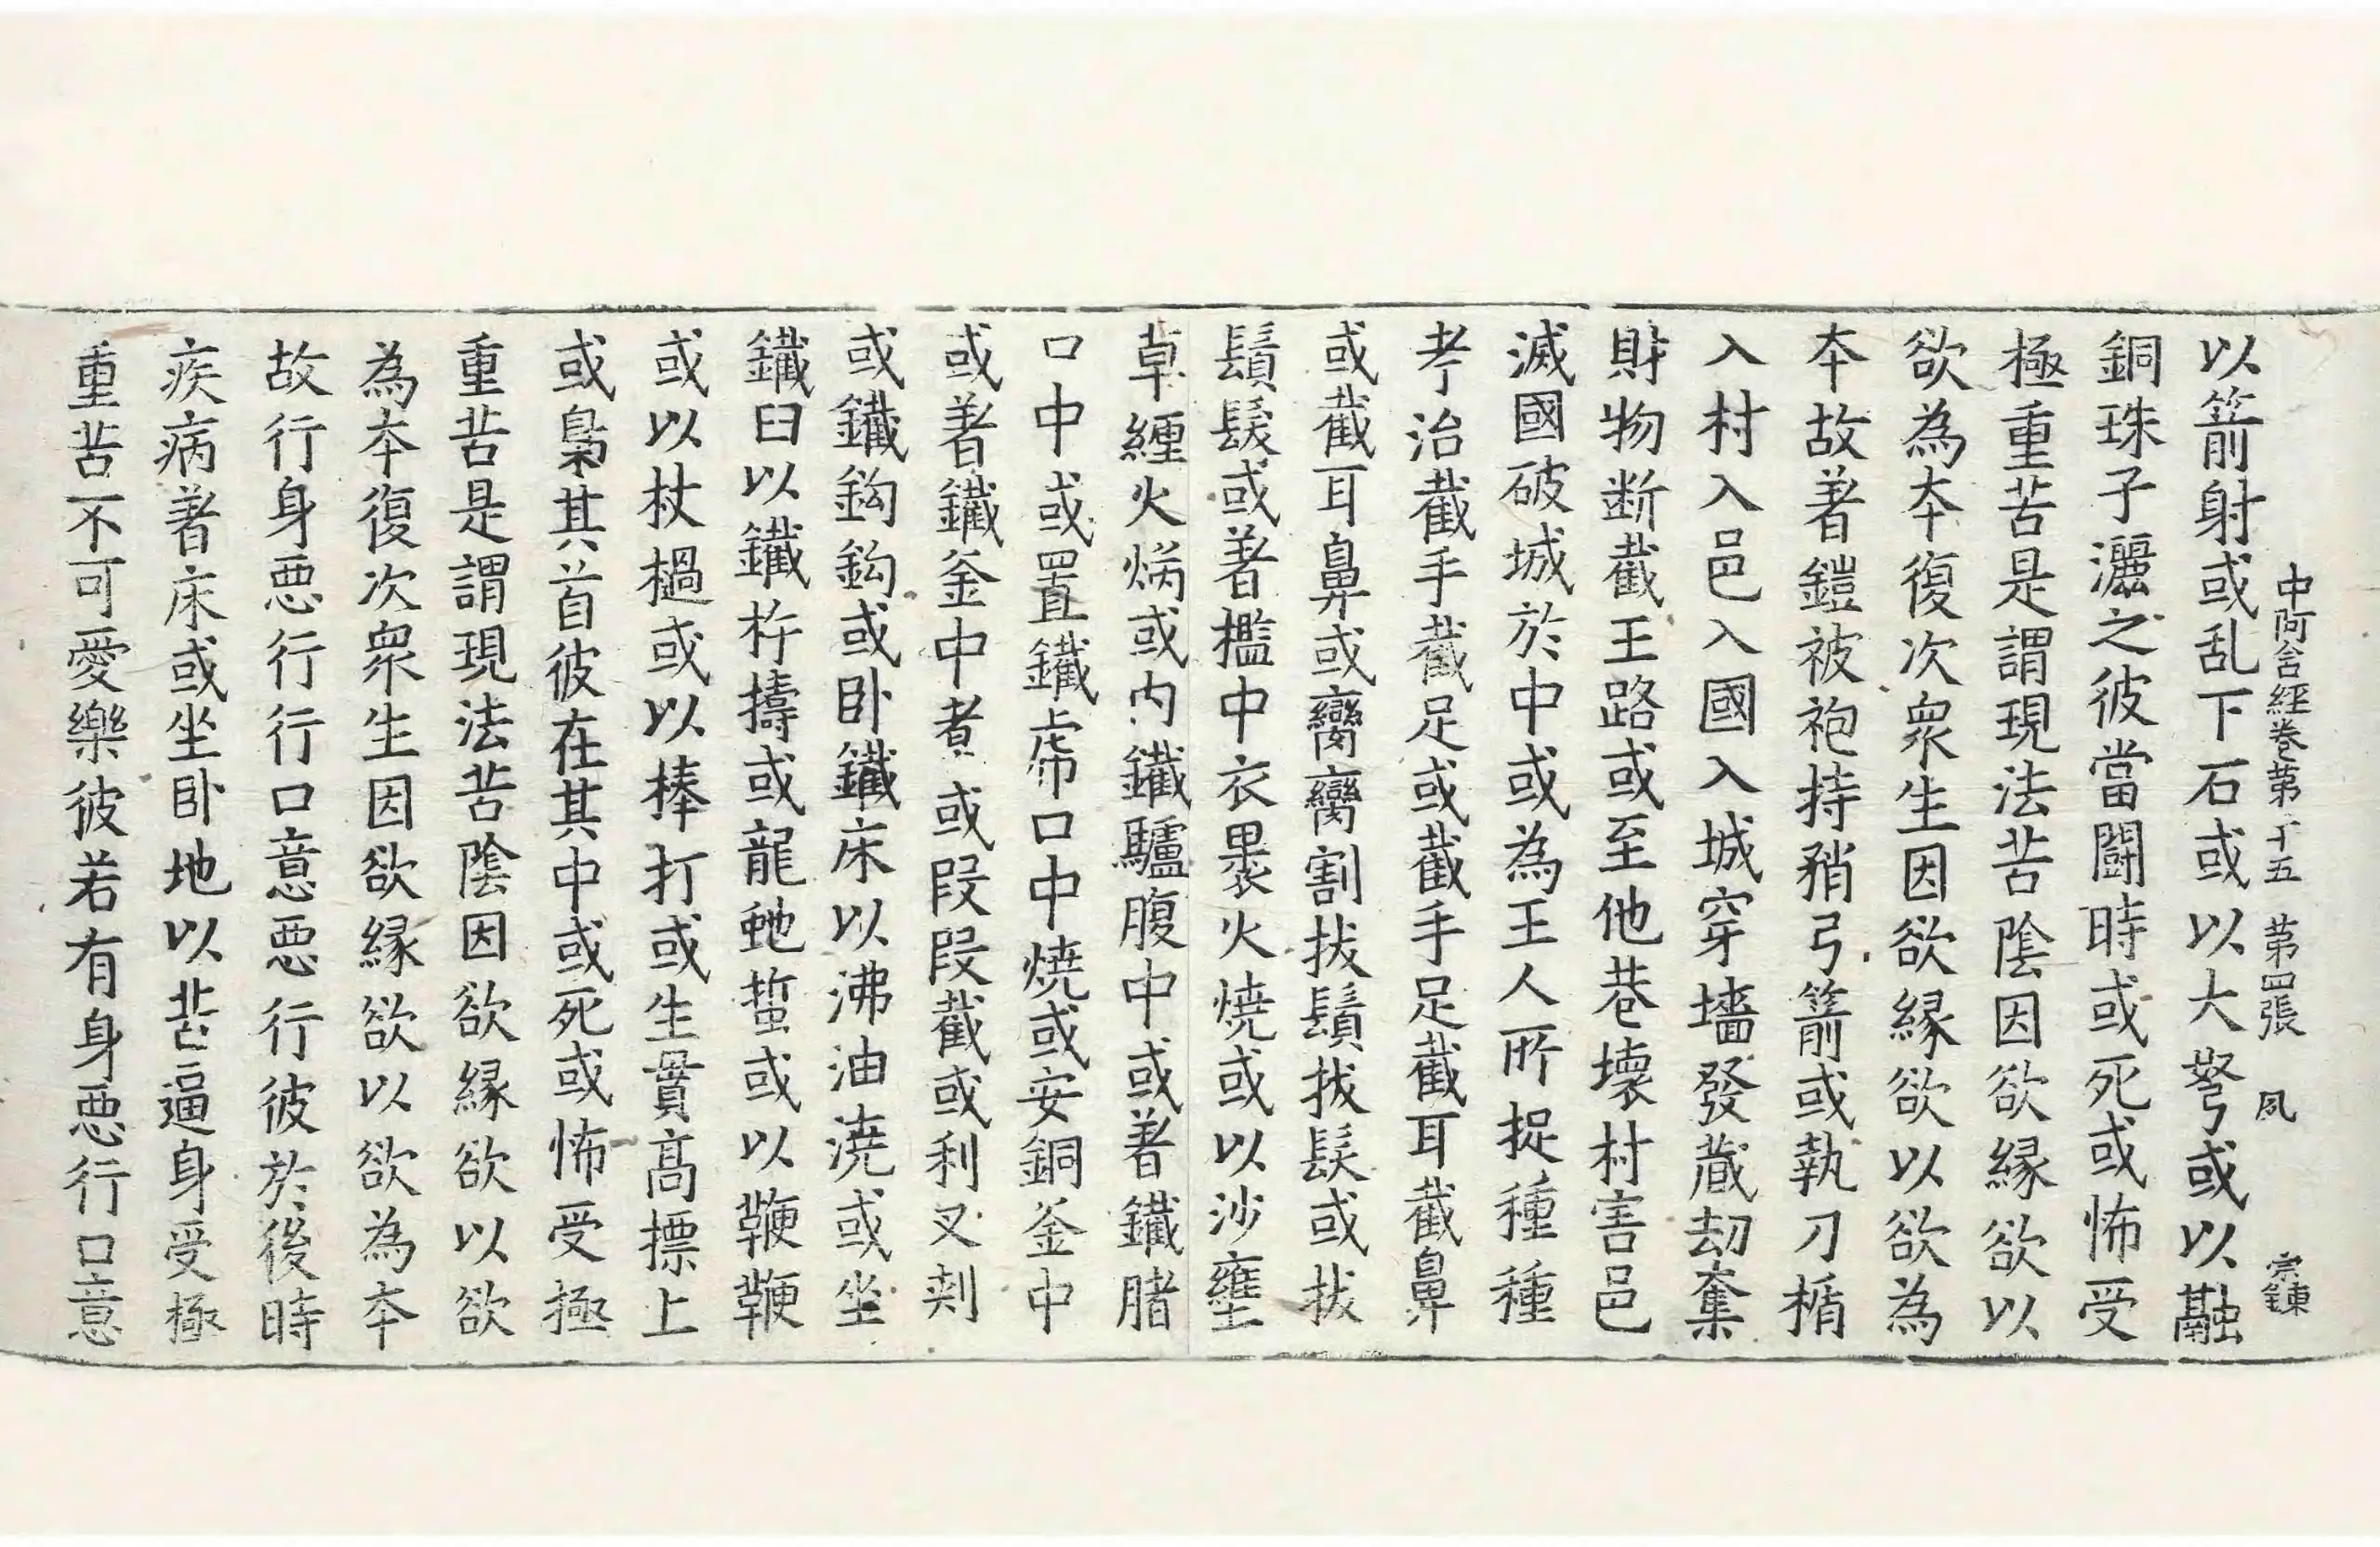 中阿含經卷第二十五 第四張 夙 宗鍊
以箭射或乱下石或以大弩或以融
銅珠子灑之彼當鬪時或死或怖受
極重苦是謂現法苦陰因欲緣欲以
欲為本復次衆生因欲緣欲以欲為
本故著鎧被袍持矟弓箭或執刀楯
入村入邑入國入城穿墻發藏刧奪
財物断截王路或至他巷壊村害邑
滅國破城於中或為王人所捉種種
考治截手截足或截手足截耳截鼻
或截耳鼻或臠臠割拔鬚拔髮或拔
鬚髮或著檻中衣褁火燒或以沙壅
草纏火焫或内鐵驢腹中或著鐵猪
口中或置鐵虎口中燒或安銅釜中
或著鐵釜中煮或段段截或利叉刾
或鐵鈎鈎或卧鐵床以沸油澆或坐
鐵臼以鐵杵擣或龍虵蜇或以鞭鞭
或以杖撾或以棒打或生貫高摽上
或梟其首彼在其中或死或怖受極
重苦是謂現法苦陰因欲緣欲以欲
為本復次衆生因欲緣欲以欲為本
故行身悪行行口意悪行彼於後時
疾病著床或坐卧地以苦逼身受極
重苦不可愛樂彼若有身悪行口意